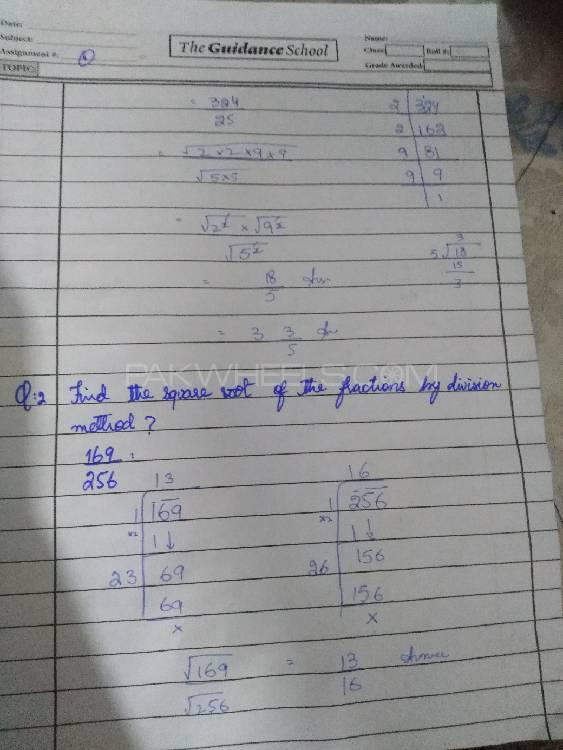 Date:
Subject:
Assignment #:
TOPIC:
The Guidance School
Name:
Class: Roll #:
Grade Awarded:
= 324
25
2 324
2 162
9 81
9 9
1
= √2×2×9×9
√5×5
= √2² × √9²
√5²
= 18
5
3
5√18
15
3
= 3 3
5
PAKWHEELS.COM
Q:2 Find the square root of the fractions by division
method?
169
256
13
1 169
×2 1↓
23 69
69
×
16
1 256
×2 1↓
26 156
156
×
√169 = 13
√256 16